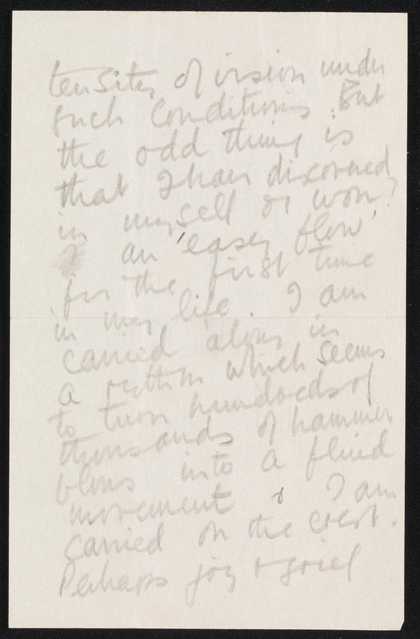 tensity of vision under
such conditions. But
the odd thing is
that I have discovered
in myself or won?
an 'easy flow'
for the first time
in my life. I am
carried along in
a rythm which seems
to turn hundreds of
thousands of hammer
blows into a fluid
movement & I am
carried on the crest.
Perhaps joy & grief